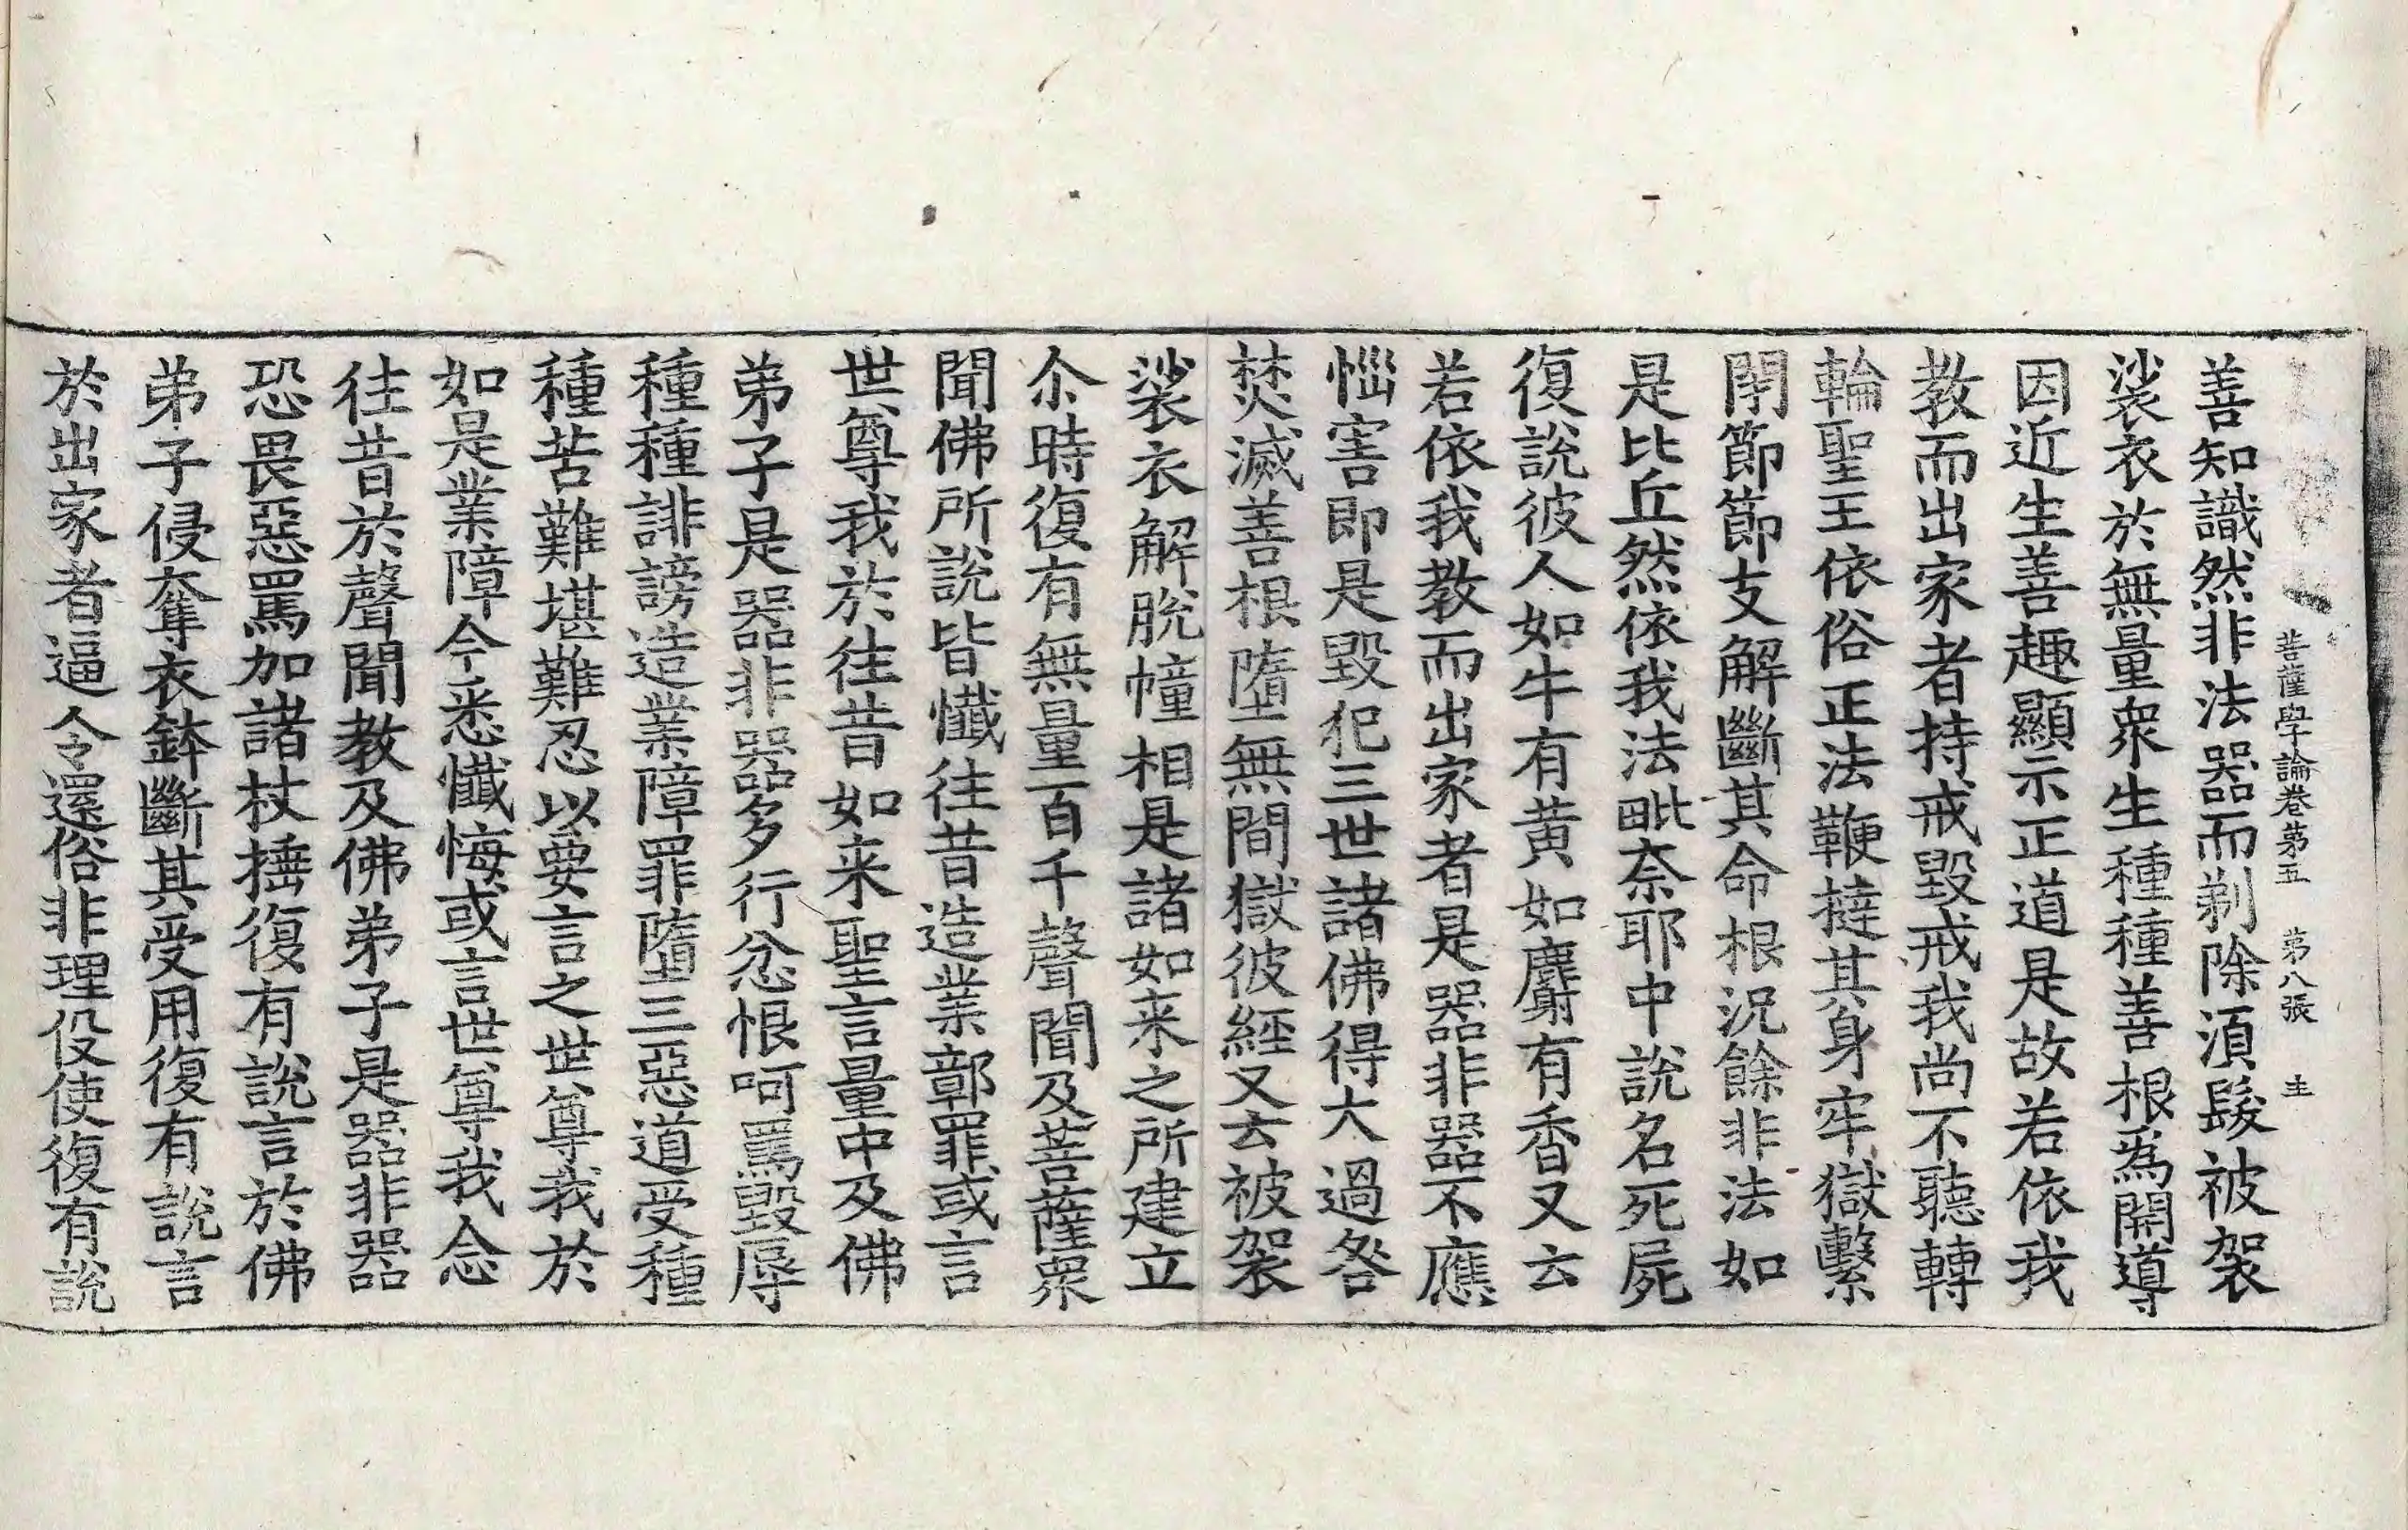 菩薩學論卷第五　第八張　圭
善知識然非法器而剃除湏髮被袈
裟衣於無量衆生種種善根爲開導
因近生善趣顯示正道是故若依我
教而出家者持戒毀戒我尚不聽轉
輪聖王依俗正法鞭撻其身牢獄繫
閇節節支解斷其命根況餘非法如
是比丘然依我法毗奈耶中說名死屍
復說彼人如牛有黃如麝有香又云
若依我教而出家者是器非器不應
惱害即是毀犯三世諸佛得大過咎
焚滅善根墮無間獄彼經又云被袈
裟衣解脫幢相是諸如来之所建立
尒時復有無量百千聲聞及菩薩衆
聞佛所說皆懺往昔造業鄣罪或言
世尊我於往昔如来聖言量中及佛
弟子是器非器多行忿恨呵罵毀辱
種種誹謗造業障罪墮三惡道受種
種苦難堪難忍以要言之世尊我於
如是業障今悉懺悔或言世尊我念
往昔於聲聞教及佛弟子是器非器
恐畏惡罵加諸杖捶復有說言於佛
弟子侵奪衣鉢斷其受用復有說言
於出家者逼令還俗非理伇使復有說